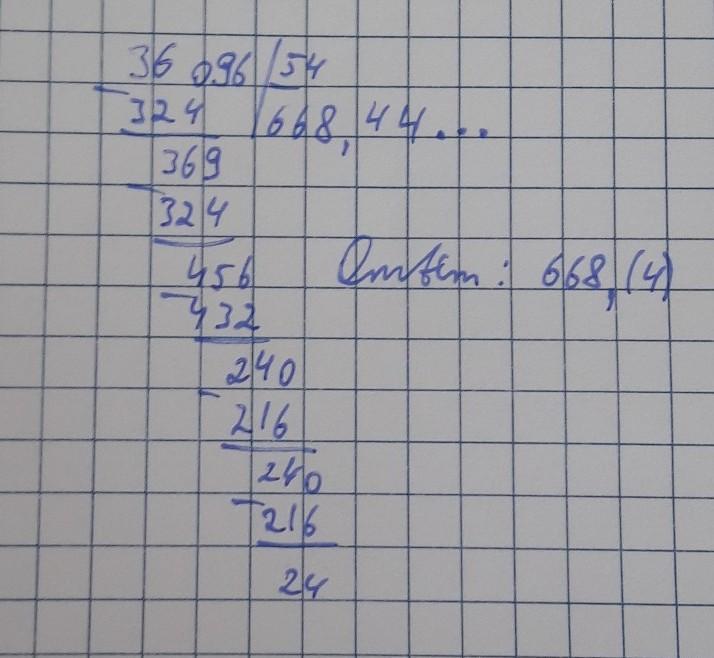 36 096 54
324 668,44...
369
324
456 Ответ: 668,(4)
432
240
216
240
216
24